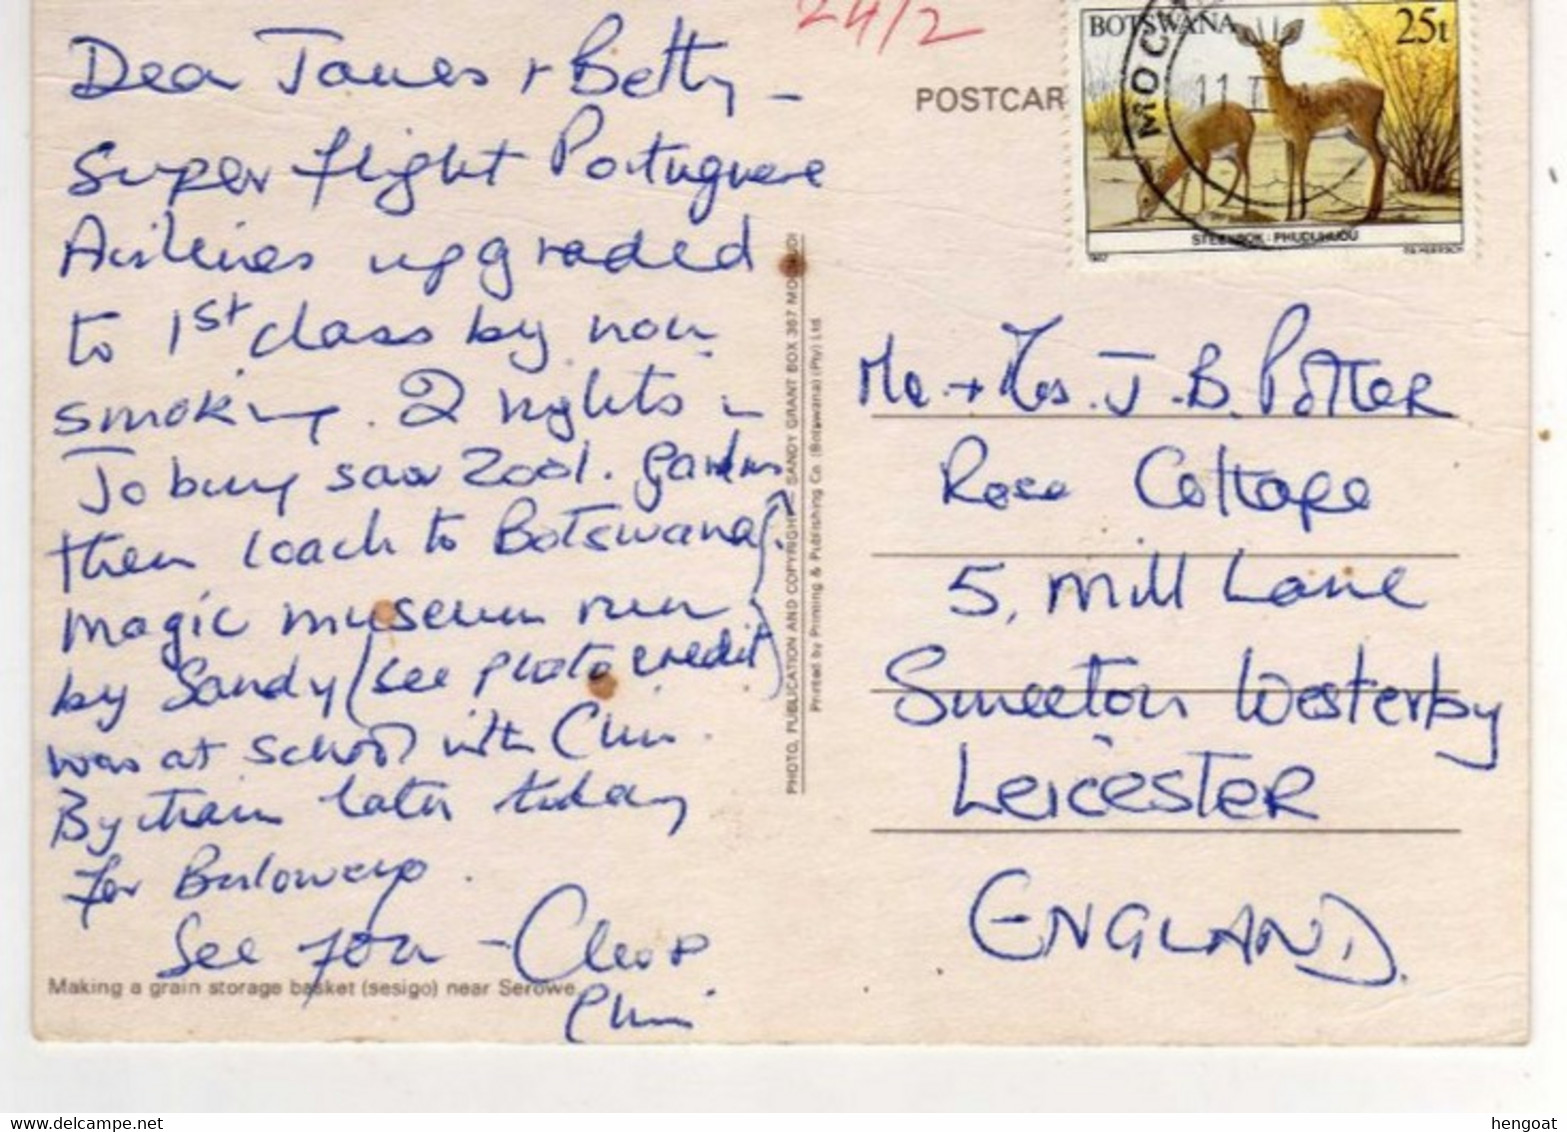 24/2
Dear James + Betty -
Super flight Portuguese
Airlines upgraded
to 1st class by non
smoking. 2 nights in
Joburg saw Zool. Gardens
then coach to Botswana.
Magic museum run
by Sandy (see photo credit)
was at school with Chris.
By train later today
for Bulawayo.
See you -
Chris
Making a grain storage basket (sesigo) near Serowe.
PHOTO, PUBLICATION AND COPYRIGHT - SANDY GRANT BOX 367 MOCHUDI
Printed by Printing & Publishing Co. (Botswana) (Pty) Ltd.
POSTCAR
BOTSWANA 25t
MOC
11 I
STEENBOK · PHUDUHUDU
Mr. + Mrs. J. B. Potter
Rose Cottage
5, Mill Lane
Smeeton Westerby
LEICESTER
ENGLAND.
hengoat